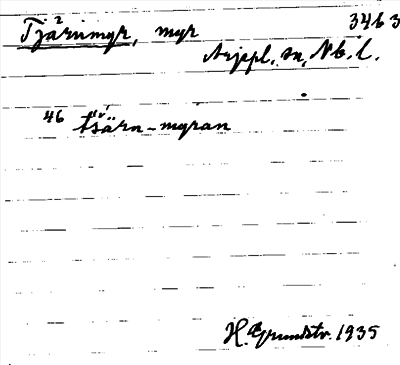 Tjärnmyr, myr 3463
Arjepl. sn, Nb. l.
46 tsärn-myran
H. Grundstr. 1935